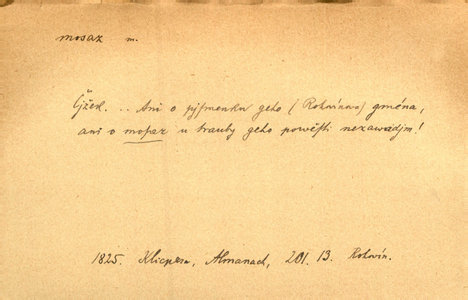 mosaz m.
Čjžek. .. Ani o pjsmenku geho (Rohovínovo) gména,
ani o mosaz u trauby geho powěsti nezawadjm!
1825. Klicpera, Almanach, 201. 13. Rohovín.